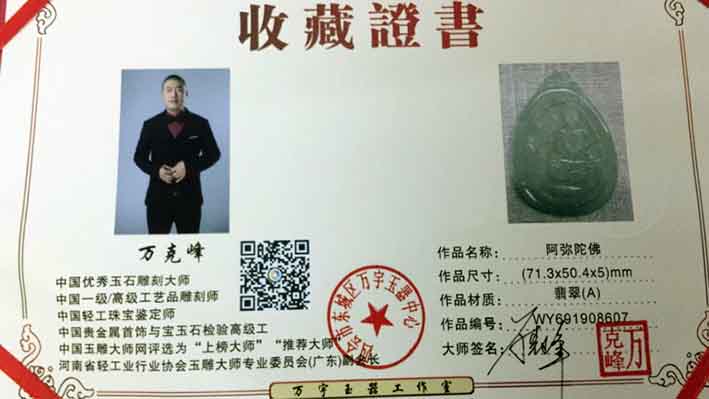 收藏證書
万克峰
中国优秀玉石雕刻大师
中国一级/高级工艺品雕刻师
中国轻工珠宝鉴定师
中国贵金属首饰与宝玉石检验高级工
中国玉雕大师网评选为“上榜大师”“推荐大师”
河南省轻工业行业协会玉雕大师专业委员会(广东)副会长
市东城区万宇玉器中心
作品名称: 阿弥陀佛
作品尺寸: (71.3x50.4x5)mm
作品材质: 翡翠(A)
作品编号: WY691908607
大师签名: 万克峰
万克峰
万宇玉器工作室